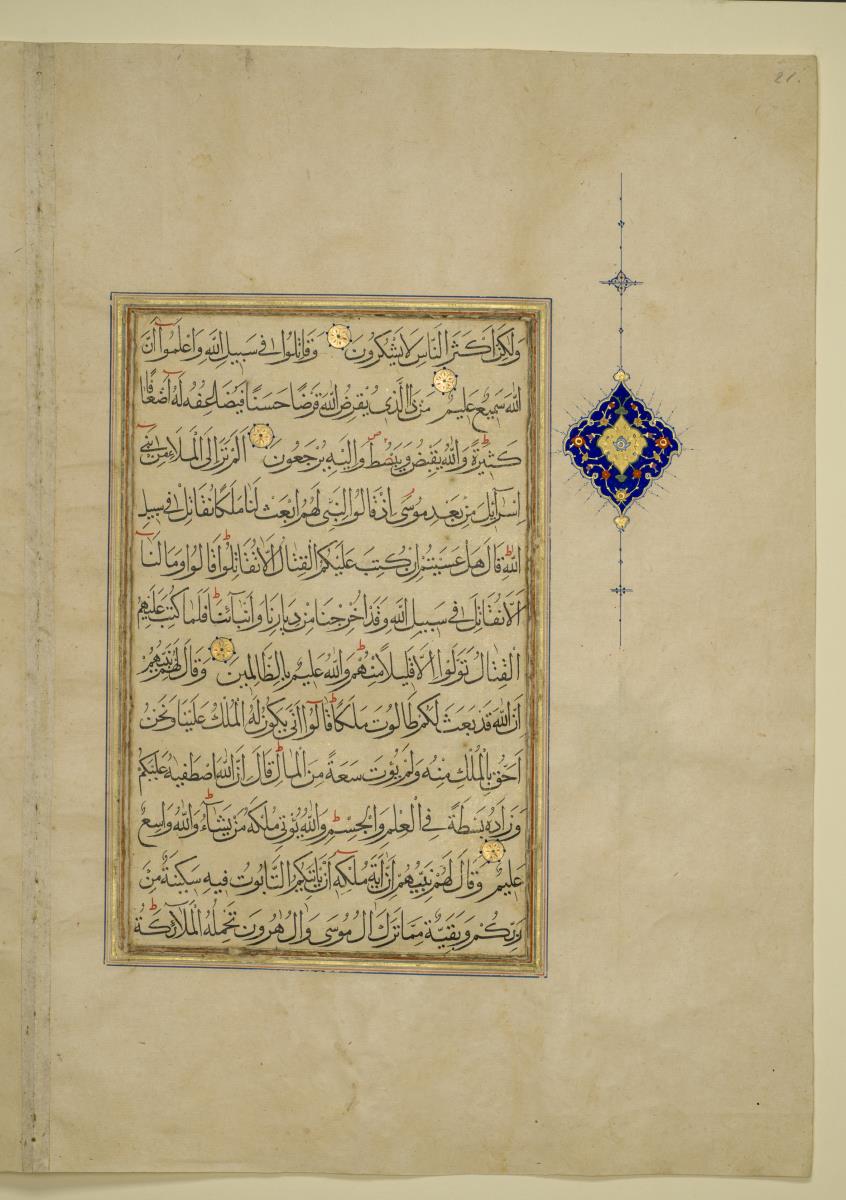 21.
وَلَكِنَّ أَكْثَرَ النَّاسِ لَا يَشْكُرُونَ وَقَاتِلُوا فِي سَبِيلِ اللَّهِ وَاعْلَمُوا أَنَّ
اللَّهَ سَمِيعٌ عَلِيمٌ مَنْ ذَا الَّذِي يُقْرِضُ اللَّهَ قَرْضًا حَسَنًا فَيُضَاعِفَهُ لَهُ أَضْعَافًا
كَثِيرَةً وَاللَّهُ يَقْبِضُ وَيَبْصُطُ وَإِلَيْهِ تُرْجَعُونَ أَلَمْ تَرَ إِلَى الْمَلَاءِ مِنْ بَنِي
إِسْرَائِيلَ مِنْ بَعْدِ مُوسَى إِذْ قَالُوا لِنَبِيٍّ لَهُمُ ابْعَثْ لَنَا مَلِكًا نُقَاتِلْ فِي سَبِيلِ
اللَّهِ قَالَ هَلْ عَسَيْتُمْ إِنْ كُتِبَ عَلَيْكُمُ الْقِتَالُ أَلَّا تُقَاتِلُوا قَالُوا وَمَا لَنَا
أَلَّا نُقَاتِلَ فِي سَبِيلِ اللَّهِ وَقَدْ أُخْرِجْنَا مِنْ دِيَارِنَا وَأَبْنَائِنَا فَلَمَّا كُتِبَ عَلَيْهِمُ
الْقِتَالُ تَوَلَّوْا إِلَّا قَلِيلًا مِنْهُمْ وَاللَّهُ عَلِيمٌ بِالظَّالِمِينَ وَقَالَ لَهُمْ نَبِيُّهُمْ
إِنَّ اللَّهَ قَدْ بَعَثَ لَكُمْ طَالُوتَ مَلِكًا قَالُوا أَنَّى يَكُونُ لَهُ الْمُلْكُ عَلَيْنَا وَنَحْنُ
أَحَقُّ بِالْمُلْكِ مِنْهُ وَلَمْ يُؤْتَ سَعَةً مِنَ الْمَالِ قَالَ إِنَّ اللَّهَ اصْطَفَيهُ عَلَيْكُمْ
وَزَادَهُ بَسْطَةً فِي الْعِلْمِ وَالْجِسْمِ وَاللَّهُ يُؤْتِي مُلْكَهُ مَنْ يَشَاءُ وَاللَّهُ وَاسِعٌ
عَلِيمٌ وَقَالَ لَهُمْ نَبِيُّهُمْ إِنَّ آيَةَ مُلْكِهِ أَنْ يَأْتِيَكُمُ التَّابُوتُ فِيهِ سَكِينَةٌ مِنْ
رَبِّكُمْ وَبَقِيَّةٌ مِمَّا تَرَكَ آلُ مُوسَى وَآلُ هَرُونَ تَحْمِلُهُ الْمَلَائِكَةُ